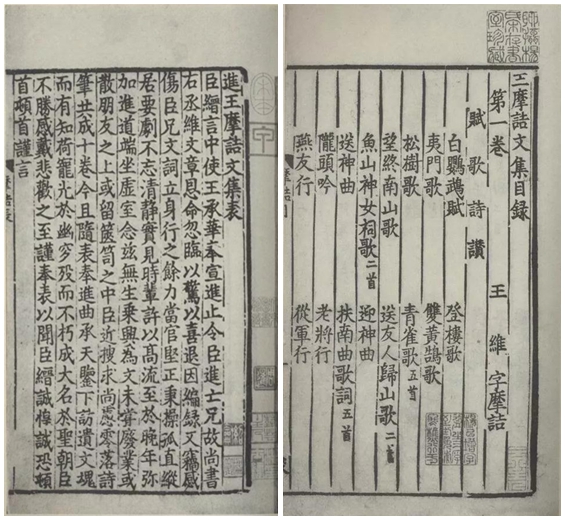 王摩詰文集目録
第一卷 王 維 字摩詰
賦 歌 詩 讃
白鸚鵡賦 登樓歌
夷門歌 雙黃鵠歌
松樹歌 青雀歌五首
望終南山歌 送友人歸山歌二首
魚山神女祠歌二首 迎神曲
送神曲 扶南曲歌詞五首
隴頭吟 老將行
燕友行 從軍行
進王摩詰文集表
臣縉言中使王承華奉宣進止令臣進亡兄故尚書
右丞維文章恩命忽臨以驚以喜退因編録又竊感
傷臣兄文詞立身行之餘力當官堅正秉操孤直縱
居要劇不忘清靜實見時輩許以高流至於晚年弥
加進道端坐虛室念兹無生乗興為文未甞廢業或
散朋友之上或留篋笥之中臣近搜求尚慮零落詩
筆共成十卷今且隨表奉進曲承天鑒下訪遺文魂
而有知荷寵光於幽穸殁而不朽成大名於聖朝臣
不勝感戴悲歡之至謹奉表以聞臣縉誠惶誠恐頓
首頓首謹言